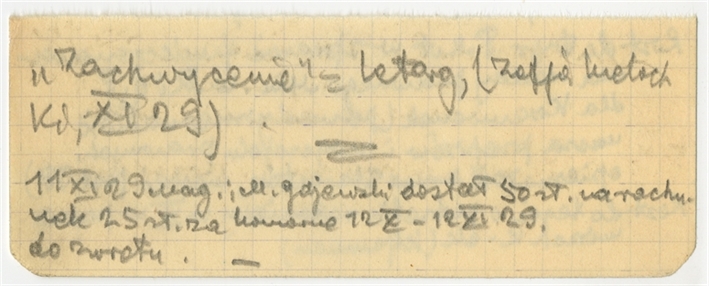 „Zachwycenie" = letarg, (Zofja Włoch
Kd, XI 29) .
11 XI 29 mag. i M. Gajewski dostał 50 zł. na rachu-
nek 25 zł. za komorne 12 X – 12 XI 29.
do zwrotu . —